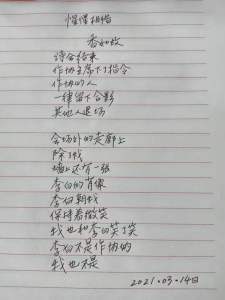 惺惺相惜
香如故
诗会结束
作协主席下了指令
作协的人
一律留下合影
其他人退场
会场外的走廊上
除了我
墙上还有一张
李白的肖像
李白朝我
保持着微笑
我也和李白笑了笑
李白不是作协的
我也不是
2021.03.14日